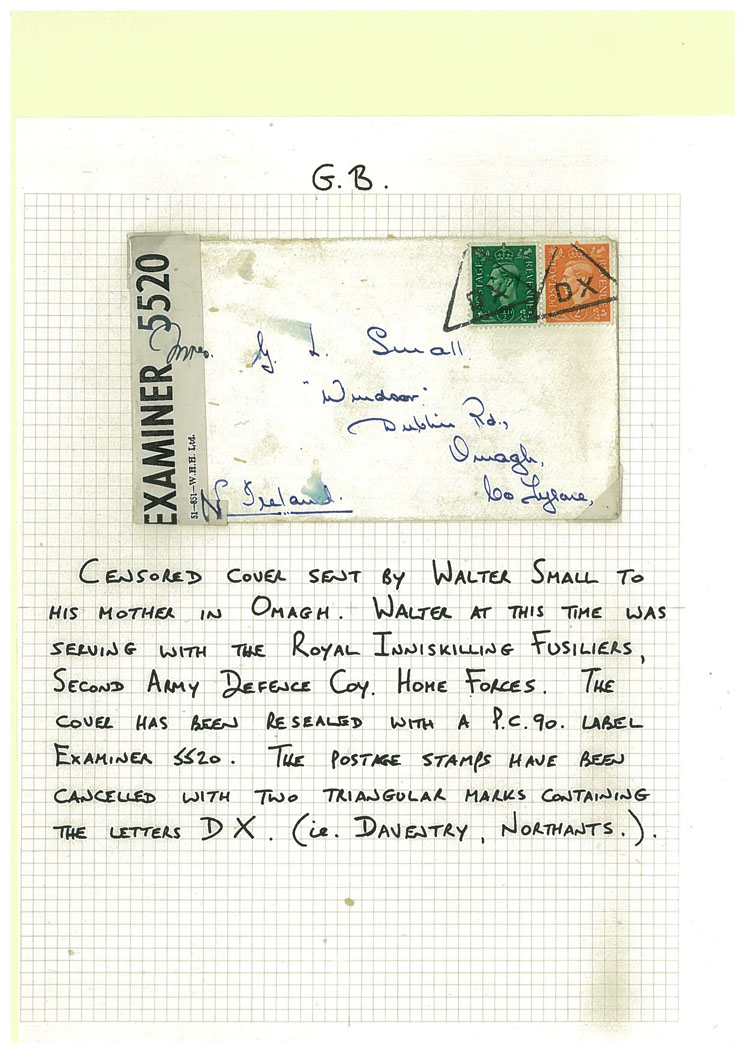 G.B.
EXAMINER 5520
51-851-W.H.H. Ltd.
POSTAGE REVENUE
POSTAGE REVENUE
DX
Mrs. G. L. Small
"Windsor"
Dublin Rd.,
Omagh,
Co Tyrone,
N Ireland.
CENSORED COVER SENT BY WALTER SMALL TO
HIS MOTHER IN OMAGH. WALTER AT THIS TIME WAS
SERVING WITH THE ROYAL INNISKILLING FUSILIERS,
SECOND ARMY DEFENCE COY. HOME FORCES. THE
COVER HAS BEEN RESEALED WITH A P.C.90. LABEL
EXAMINER 5520. THE POSTAGE STAMPS HAVE BEEN
CANCELLED WITH TWO TRIANGULAR MARKS CONTAINING
THE LETTERS DX. (ie. DAVENTRY, NORTHANTS.).